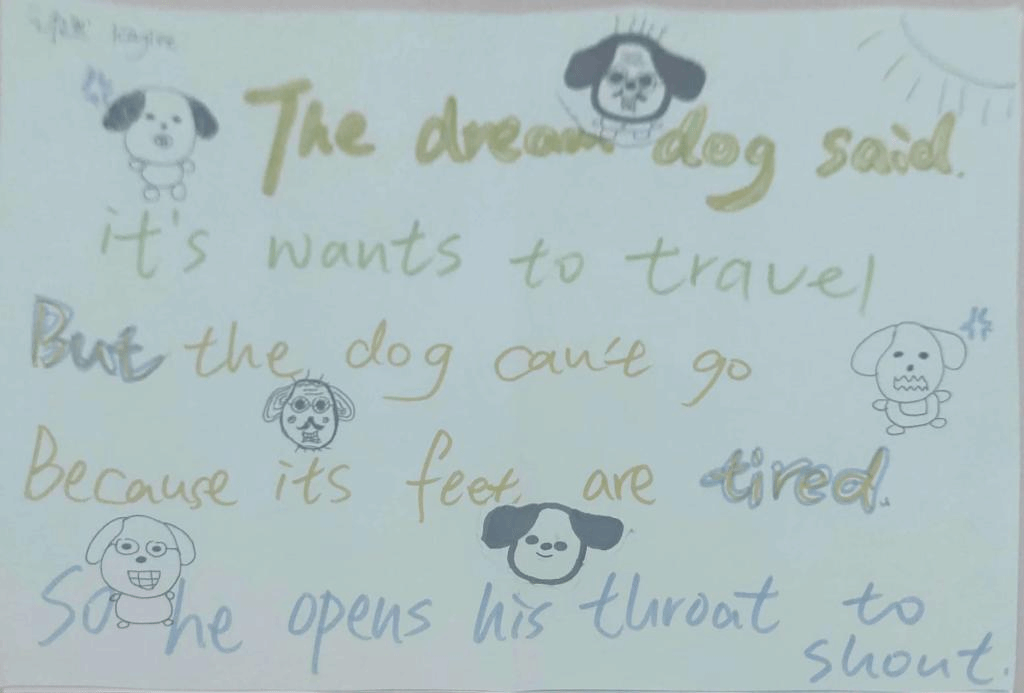 The dream dog said.
it's wants to travel
But the dog can't go
Because its feet are tired.
So he opens his throat to
shout.